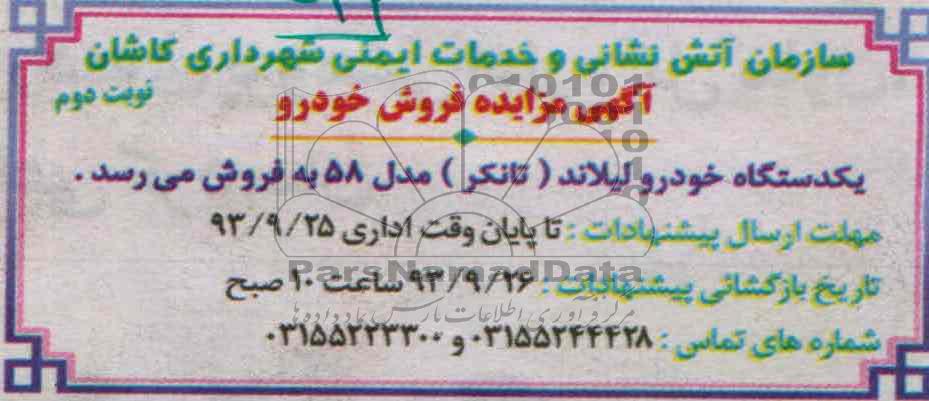 سازمان آتش نشانی و خدمات ایمنی شهرداری کاشان
آگهی مزایده فروش خودرو
نوبت دوم
یکدستگاه خودرو لیلاند ( تانکر ) مدل ۵۸ به فروش می رسد .
مهلت ارسال پیشنهادات : تا پایان وقت اداری ۹۳/۹/۲۵
تاریخ بازگشائی پیشنهادات : ۹۳/۹/۲۶ ساعت ۱۰ صبح
شماره های تماس : ۰۳۱۵۵۲۴۴۴۲۸ و ۰۳۱۵۵۲۲۳۳۰۰
ParsNamadData
مرکز فرآوری اطلاعات پارس نماد داده ها